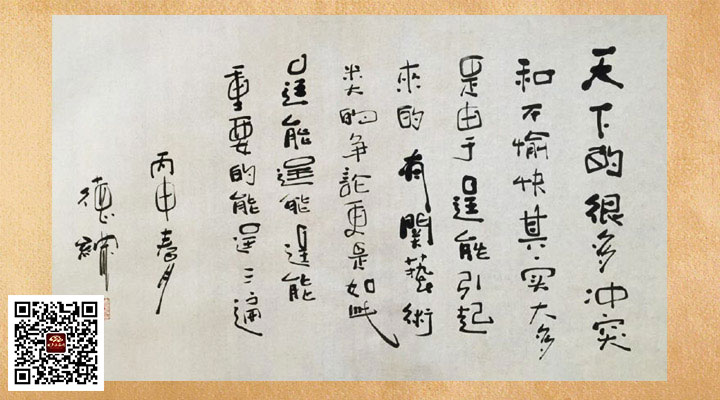 天下的很多冲突
和不愉快其实大多
是由于逞能引起
來的有関藝術
类的争論更是如此
逞能逞能逞能
重要的能逞三通
丙申春月
德